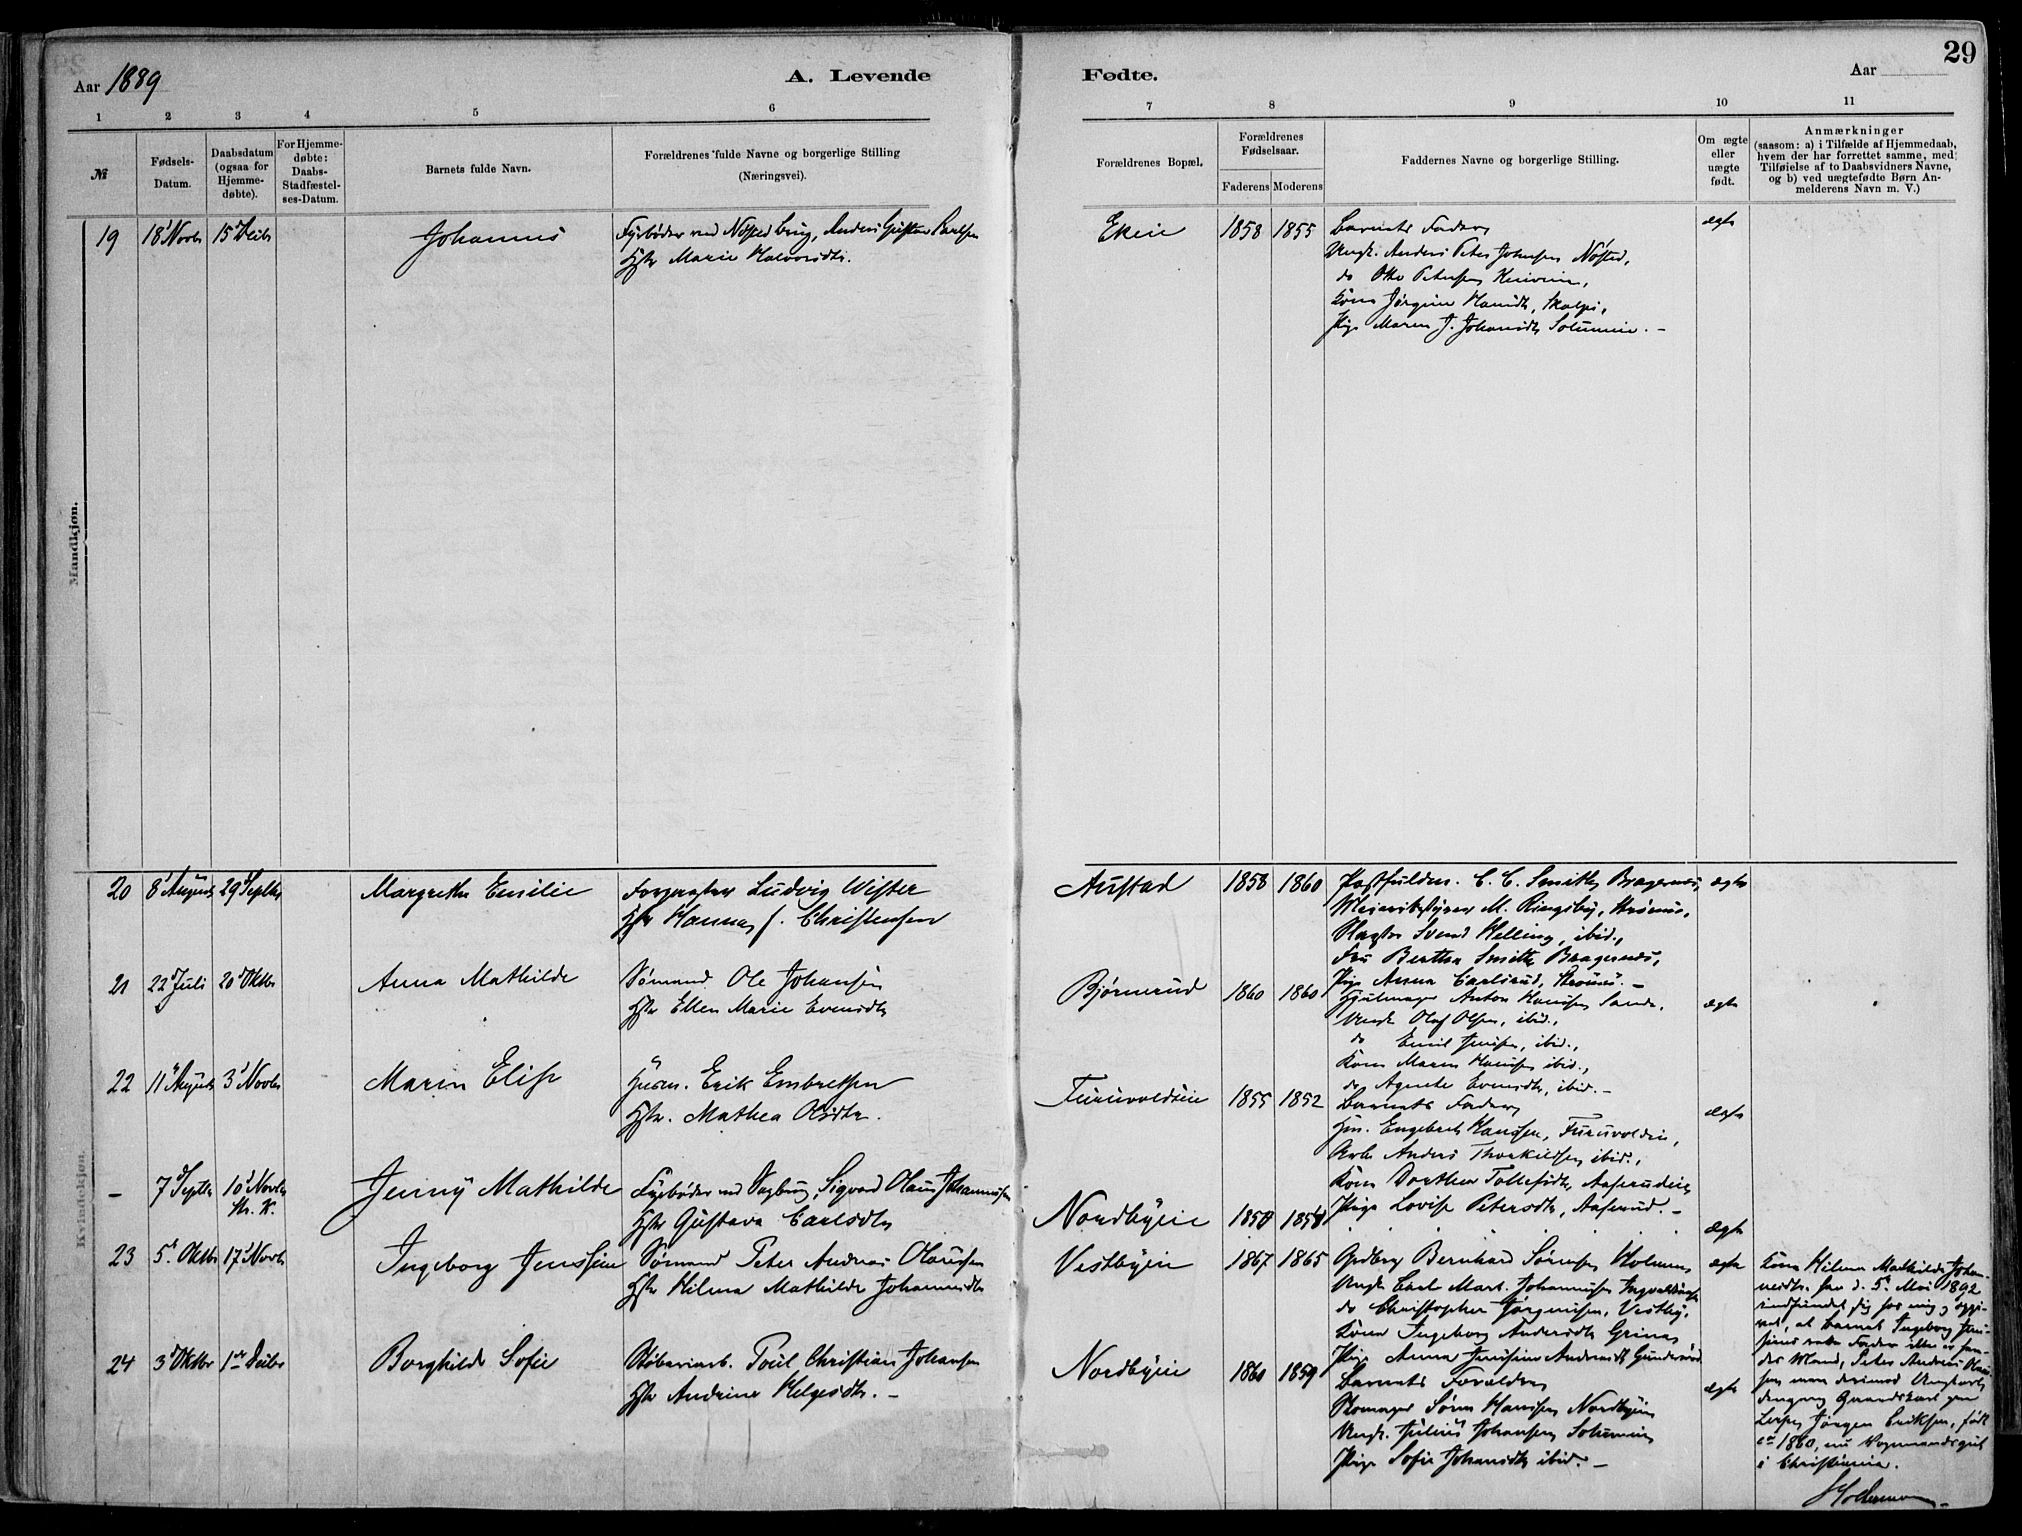 29
Aar 1889
A. Levende
Fødte.
Aar
1 2 3 4 5 6
7 8 9 10 11
№
Fødsels-
Datum.
Daabsdatum
(ogsaa for
Hjemme-
døbte).
For Hjemme-
døbte:
Daabs-
Stadfæstel-
ses-Datum.
Barnets fulde Navn.
Forældrenes fulde Navne og borgerlige Stilling
(Næringsvei).
Forældrenes Bopæl.
Forældrenes
Fødselsaar.
Faderens Moderens
Faddernes Navne og borgerlige Stilling.
Om ægte
eller
uægte
født.
Anmærkninger
(saasom: a) i Tilfælde af Hjemmedaab,
hvem der har forrettet samme, med
Tilføielse af to Daabsvidners Navne,
og b) ved uægtefødte Børn An-
melderens Navn m. V.)
Mandkjøn.
19 18 Novbr 15 Decbr Johannes
Fyrbøder ved Nøsted brug, Anders Gustav Paulsen
Hstr Marie Halvorsdtr.
Ekeie 1858 1855
Barnets Fader,
Ungk. Anders Peter Johnsen Nøsted,
do Otto Petersen
Kone Jørgine Hansdtr,
Pige Maren J. Johansdtr Solumeie. –
ægte
Kvindekjøn.
20 8 August 29 Septbr Margrethe Emilie
Forpagter Ludvig Wister
Hstr Hanna f. Christensen
Austad 1858 1860
Postfuldm. C. C. Smith, Bragernes,
Meieribestyrer M. Ringsby, Strømsø,
Svend Helling, ibid.,
Fru Bertha Smith Bragernes,
Pige Anna Carlsrud, Strømsø. –
ægte
21 22 Juli 20 Oktbr Anna Mathilde
Sømand Ole Johansen
Hstr Ellen Marie Evensdtr
Bjørnerud 1860 1860
Hjulmager Anton Hansen Sande,
Ungk Olaf Olsen, ibid.,
do Emil Jensen, ibid.,
Kone Maren Hansen ibid.,
do Agnete Evensdtr, ibid. –
ægte
22 11 August 3 Novbr Maren Elise
Husm. Erik Embretsen
Hstr. Mathea Olsdtr.
Furuvoldeie 1855 1852
Barnets Fader,
Hm. Engebret Hansen, Furuvoldeie,
Arb. Anders Thorkildsen ibid.,
Kone Dorthea Tollefsdtr, Aaserudeie,
Pige Lovise Petersdtr, Aaserud. –
ægte
– 7 Septbr 10 Novbr Jenny Mathilde
Str. K.
Fyrbøder ved Sagbrug, Sigvard Olaus Johannesen
Hstr Gustava Carlsdtr
Nordbyeie 1858 1858
ægte
23 5. Oktbr 17 Novbr Ingeborg Jenssine
Sømand Peter Andreas Olaussen
Hstr Hilma Mathilde Johannesdtr
Vestbyeie 1867 1865
Gbrdbrg Bernhard Sørensen Holmen,
Ungk Carl Mart. Johannesen
do Christopher Jørgensen, Vestby,
Kone Ingeborg Andersdtr Grina,
Pige Anna Jensine Andersdtr Gunderud
ægte
Kone Hilma Mathilde Johan-
nesdtr. har d. 5te Mai 1892
indfundet sig for mig og opgi-
vet, at barnet Ingeborg Jens-
sines rette Fader ikke er hen-
des Mand, Peter Andreas Olaus-
sen men derimod Ungkarl
Jørgen Eriksen, født
ca 1860, nu Vognmandsgut
i Christiania.
24 3 Oktbr 1ste Decbr Borghilde Sofie
Støberiarb. Poul Christian Johansen
Hstr Andrine Helgesdtr. –
Nordbyeie 1860 1859
Barnets Forældre,
Skomager Søren Hansen Nordbyeie
Ungk. Julius Johansen Solumeie
Pige Sofie Johansdtr ibid. –
ægte